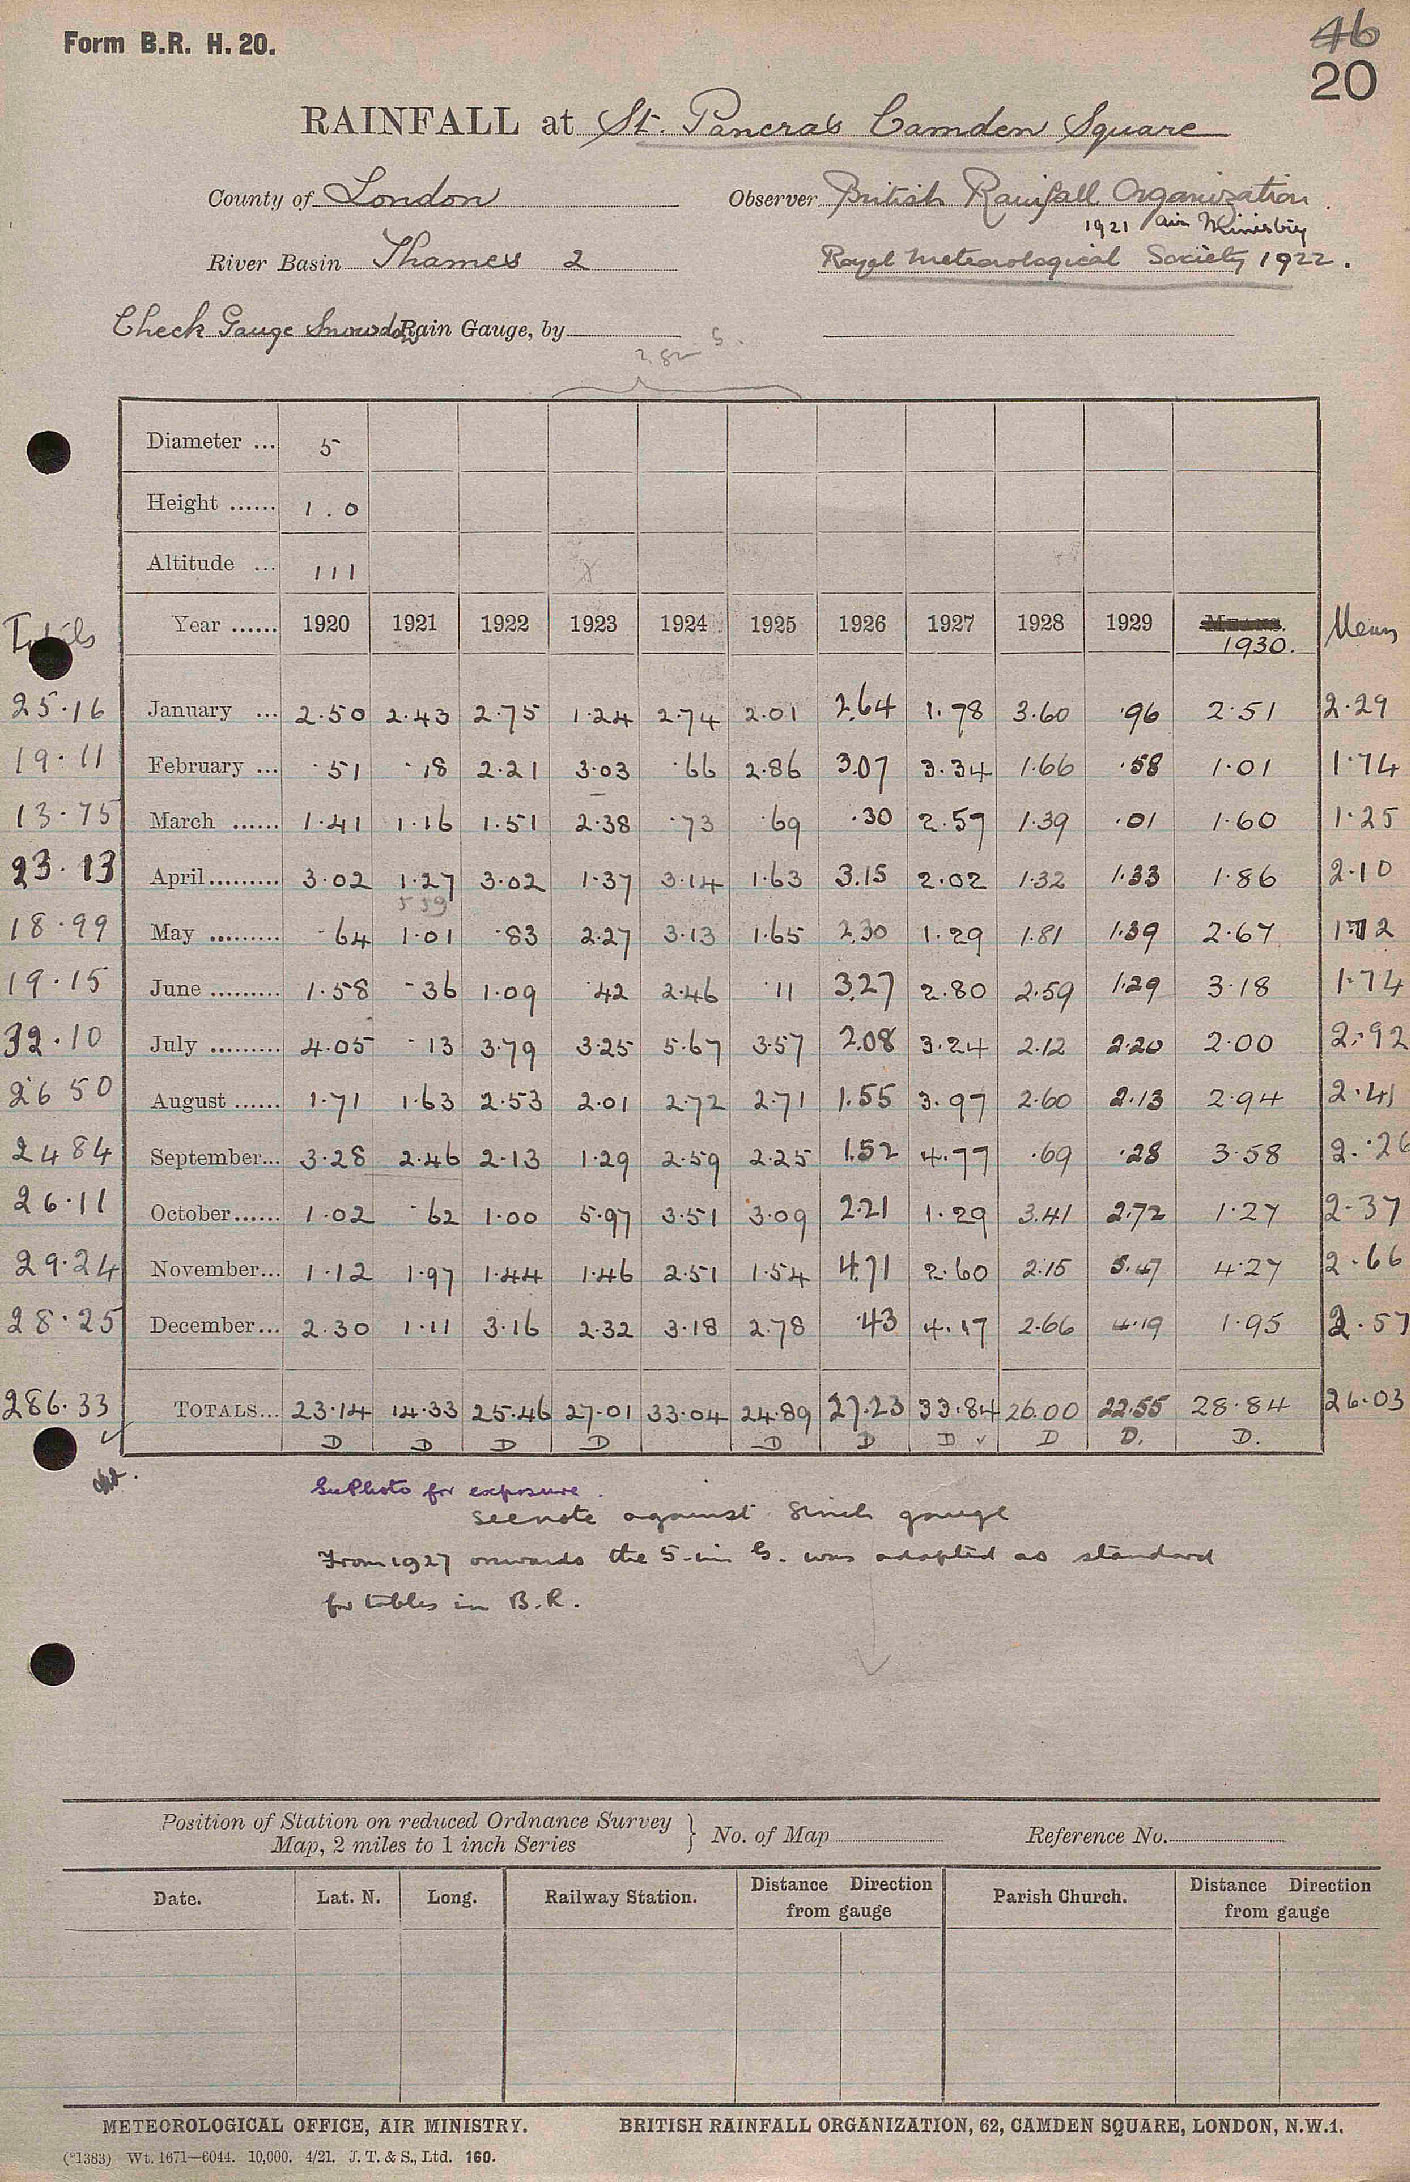 Form B.R. H. 20.
46
20
RAINFALL at St. Pancras Camden Square
County of London Observer British Rainfall Organization
1921 Air Ministry
River Basin Thames 2 Royal Meteorological Society 1922.
Check Gauge Snowdon Rain Gauge, by
Diameter ... 5
Height ...... 1.0
Altitude ... 111
Totals Year ...... 1920 1921 1922 1923 1924 1925 1926 1927 1928 1929 1930. Mean
25.16 January ... 2.50 2.43 2.75 1.24 2.74 2.01 2.64 1.78 3.60 .96 2.51 2.29
19.11 February ... .51 .18 2.21 3.03 .66 2.86 3.07 3.34 1.66 .58 1.01 1.74
13.75 March ...... 1.41 1.16 1.51 2.38 .73 .69 .30 2.57 1.39 .01 1.60 1.25
23.13 April......... 3.02 1.27 3.02 1.37 3.14 1.63 3.15 2.02 1.32 1.33 1.86 2.10
18.99 May ......... .64 1.01 .83 2.27 3.13 1.65 2.30 1.29 1.81 1.39 2.67 1.72
19.15 June ......... 1.58 .36 1.09 .42 2.46 .11 3.27 2.80 2.59 1.29 3.18 1.74
32.10 July ......... 4.05 .13 3.79 3.25 5.67 3.57 2.08 3.24 2.12 2.20 2.00 2.92
26 50 August ...... 1.71 1.63 2.53 2.01 2.72 2.71 1.55 3.97 2.60 2.13 2.94 2.41
24 84 September... 3.28 2.46 2.13 1.29 2.59 2.25 1.52 4.77 .69 .28 3.58 2.26
26.11 October...... 1.02 .62 1.00 5.97 3.51 3.09 2.21 1.29 3.41 2.72 1.27 2.37
29.24 November... 1.12 1.97 1.44 1.46 2.51 1.54 4.71 2.60 2.15 5.47 4.27 2.66
28.25 December... 2.30 1.11 3.16 2.32 3.18 2.78 .43 4.17 2.66 4.19 1.95 2.57
286.33 TOTALS... 23.14 14.33 25.46 27.01 33.04 24.89 27.23 33.84 26.00 22.55 28.84 26.03
D D D D D D D D D. D.
See Photo for exposure.
See note against 8 inch gauge
From 1927 onwards the 5-in G. was adopted as standard
for tables in B.R.
Position of Station on reduced Ordnance Survey
Map, 2 miles to 1 inch Series } No. of Map Reference No.
Date. Lat. N. Long. Railway Station. Distance Direction from gauge Parish Church. Distance Direction from gauge
METEOROLOGICAL OFFICE, AIR MINISTRY. BRITISH RAINFALL ORGANIZATION, 62, CAMDEN SQUARE, LONDON, N.W.1.
(*1383) Wt. 1671—6044. 10,000. 4/21. J. T. & S., Ltd. 160.